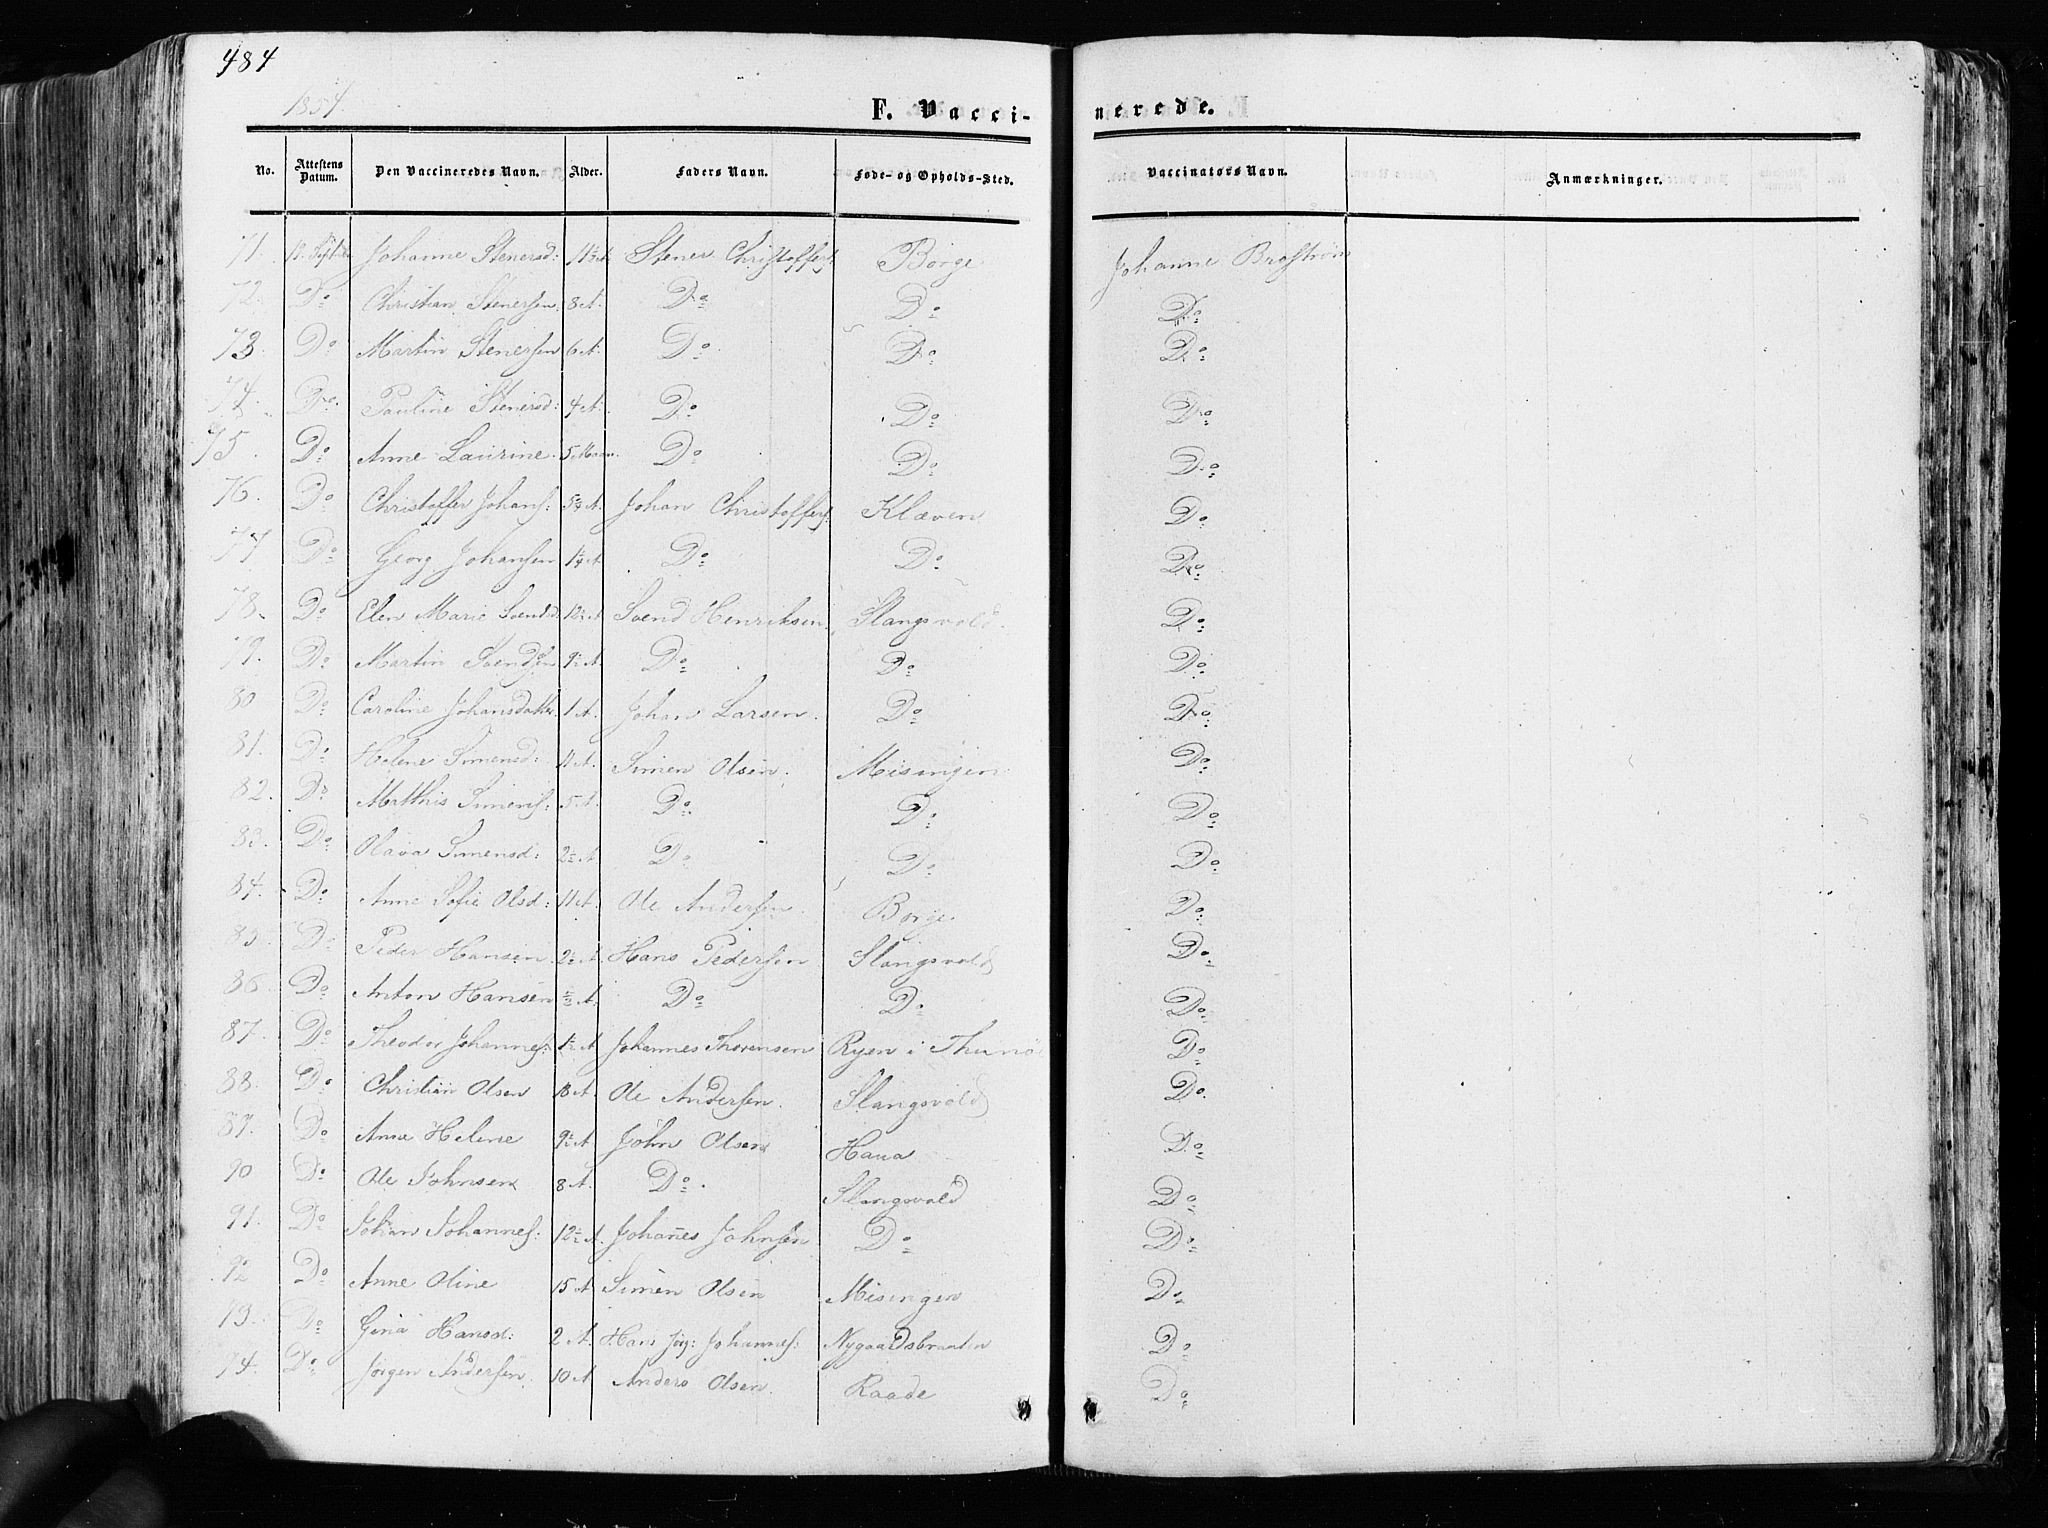 484
1854
F. Vaccinerede.
No. Attestens Datum. Den Vaccineredes Navn. Alder. Faders Navn. Føde- og Opholds-Sted. Vaccinators Navn. Anmærkninger.
71. Johanne Stenersd: 11½ A. Stener Christoffers: Borge Johanne Brostrøm
72. Do Christian Stenersen 8 A. Do Do Do
73. Do Martin Stenersen 6 A. Do Do Do
74. Do Pauline Stenersd: 4 A. Do Do Do
75. Do Anne Laurine 5 Maan. Do Do Do
76. Do Christoffer Johans: A. Johan Christoffers: Klæven Do
77 Do Georg Johansen 1¼ A Do Do Do
78. Do Elen Marie Svendsd 12½ A Svend Henriksen Slangsvold Do
79. Do Martin Svendsen 9½ A. Do Do Do
80 Do Caroline Johansdatter 1 A. Johan Larsen Do Do
81. Do Helene Simensd: 11 A. Simen Olsen Misingen Do
82. Do Matthis Simens: 5 A. Do Do Do
83. Do Olava Simensd: 2½ A Do Do Do
84. Do Anne Sofie Olsd: 11 A. Ole Andersen Borge Do
85. Do Peder Hansen 2½ A. Hans Pedersen Slangsvold Do
86. Do Anton Hansen ½ A. Do Do Do
87. Do Theodor Johannes: 1½ A Johannes Thorensen Ryen i Thunø Do
88. Do Christian Olsen 13 A. Ole Andersen Slangsvold Do
89. Do Anne Helene 9½ A John Olsen Haua Do
90 Do Ole Johnsen 8 A. Do Slangsvold Do
91. Do Johan Johannes: 12½ A. Johanes Johnsen Do Do
92 Do Anne Oline 15 A Simen Olsen Misingen Do
93. Do Gina Hansd: 2 A. Hans Jørg: Johannes: Nygaardsbraaten Do
94. Do Jørgen Andersen 10 A. Anders Olsen Raade Do